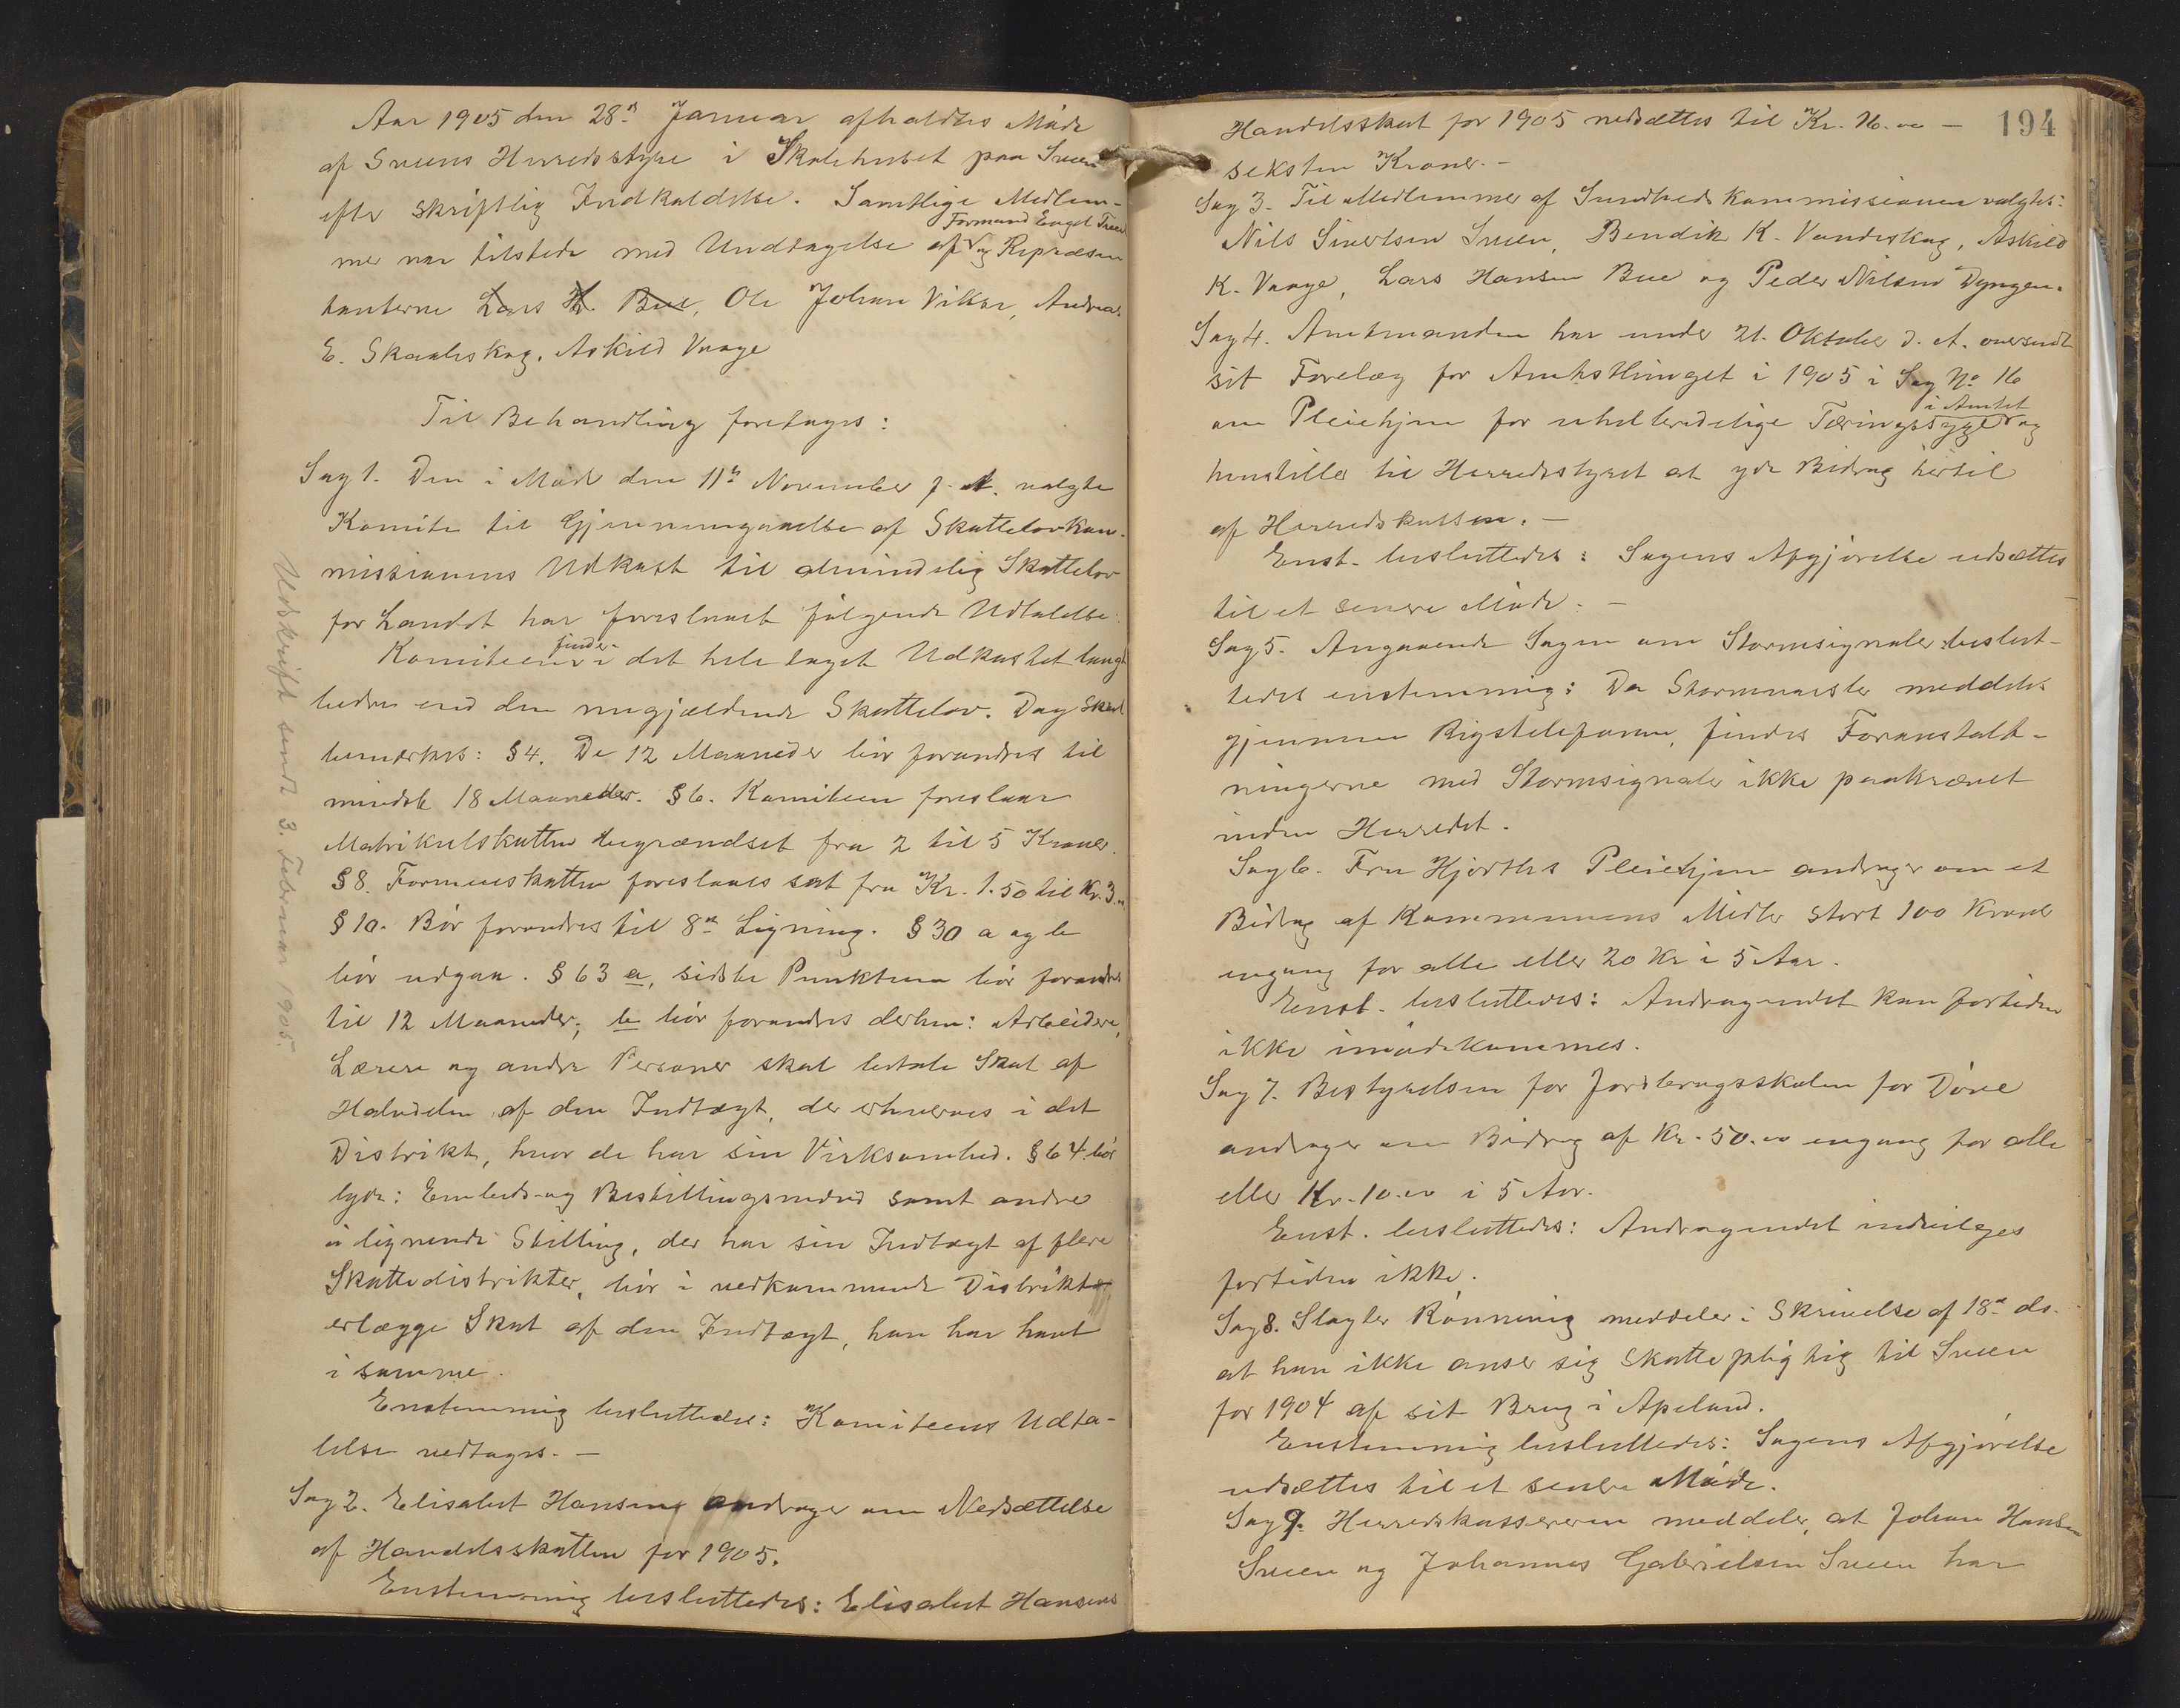 Aar 1905 den 28de Januar afholdtes Møde
af Sveens Herredsstyre i Skolehuset paa Sveen
efter skriftlig Indkaldelse. Samtlige Medlem-
mer var tilstede med Undtagelse af Formand Engel Tveit og Repræsen
tanterne Lars H. Bue, Ole Johan Vikse, Andreas
E. Skaaleskog, Askild Vaage
Til Behandling foretages:
Sag 1. Den i Møde den 11te November f. A. valgte
Komite til Gjennemgaaelse af Skattelovkom-
missionens Udkast til almindelig Skattelov
for Landet har foreslaaet følgende Udtalelse:
Komiteen finder i det hele taget Udkastet langt
bedre end den nugjældende Skattelov. Dog skal
bemærkes: § 4. De 12 Maaneder bør forandres til
mindst 18 Maaneder. § 6. Komiteen foreslaar
Matrikulskatten begrændset fra 2 til 5 Kroner.
§ 8. Formueskatten foreslaaes sat fra Kr. 1.50 til Kr. 3.00
§ 10. Bør forandres til 8de Ligning. § 30 a og b
bør udgaa. § 63 a, sidste Punktum bør forandres
til 12 Maaneder; b bør forandres derhen: Arbeidere,
Lærere og andre Personer skal betale Skat af
Halvdelen af den Indtægt, der erhverves i det
Distrikt, hvor de har sin Virksomhed. § 64 bør
lyde: Embeds- og Bestillingsmænd samt andre
i lignende Stilling, der har sin Indtægt af flere
Skattedistrikter, bør i vedkommende Distrikt
erlægge Skat af den Indtægt, han har havt
i samme.
Enstemmig besluttedes: Komiteens Udta-
lelse vedtages. -
Sag 2. Elisabet Hansen andrager om Nedsættelse
af Handelsskatten for 1905.
Enstemmig besluttedes: Elisabet Hansens
Udskrift sendt 3. Februar 1905.
194
Handelsskat for 1905 nedsættes til Kr. 16.00 -
seksten Kroner. -
Sag 3. Til Medlemmer af Sundhedskommissionen valgtes:
Nils Sivertsen Sveen, Bendik K. Vandeskog, Askild
K. Vaage, Lars Hansen Bue og Peder Nilsen Dyngen.
Sag 4. Amtmanden har under 21. Oktober d. A. oversendt
sit Forelæg for Amtsthinget i 1905 i Sag No 16
om Pleiehjem for uhelbredelige Tæringssyge i Amtet og
henstiller til Herredsstyret at yde Bidrag hertil
af Herredskassen. -
Enst. besluttedes: Sagens Afgjørelse udsættes
til et senere Møde. -
Sag 5. Angaaende Sagen om Stormsignaler beslut-
tedes enstemmig: Da Stormvarsler meddeles
gjennem Rigstelefonen, findes Foranstalt-
ningerne med Stormsignaler ikke paakrævet
inden Herredet.
Sag 6. Fru Hjorths Pleiehjem andrager om et
Bidrag af Kommunens Midler stort 100 Kroner
engang for alle eller 20 Kr i 5 Aar.
Enst. besluttedes: Andragendet kan fortiden
ikke imødekommes.
Sag 7. Bestyrelsen for Jordbrugsskolen for Døve
andrager om Bidrag af Kr. 50.00 engang for alle
eller Kr. 10.00 i 5 Aar.
Enst. besluttedes: Andragendet indvilges
fortiden ikke.
Sag 8. Slagter Rønning meddeler i Skrivelse af 18de ds.
at han ikke anser sig skattepligtig til Sveen
for 1904 af sit Brug i Apeland.
Enstemmig besluttedes: Sagens Afgjørelse
udsættes til et senere Møde.
Sag 9. Herredskassereren meddeler, at Johan Hansen
Sveen og Johannes Gabrielsen Sveen har